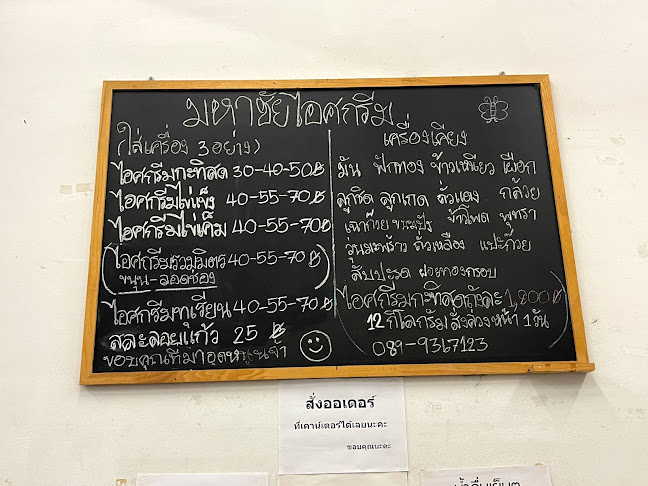 มหาชัยไอศกรีม
(ใส่เครื่อง 3 อย่าง)
ไอศกรีมกะทิสด 30-40-50฿
ไอศกรีมไข่แข็ง 40-55-70฿
ไอศกรีมไข่เค็ม 40-55-70฿
(ไอศกรีมรวมมิตร 40-55-70฿
ขนุน-ลอดช่อง)
ไอศกรีมทุเรียน 40-55-70฿
สละลอยแก้ว 25 ฿
ขอบคุณที่มาอุดหนุนจ้า
เครื่องเคียง
มัน ฟักทอง ข้าวเหนียว เผือก
ลูกชิด ลูกเกด ถั่วแดง กล้วย
เฉาก๊วย ขนมปัง ข้าวโพด พุทรา
วุ้นมะพร้าว ถั่วเหลือง แปะก๊วย
สับปะรด ฝอยทองกรอบ
(ไอศกรีมกะทิสดถังละ 1,800฿
12 กิโลกรัม สั่งล่วงหน้า 1 วัน)
089-9367123
สั่งออเดอร์
ที่เคาน์เตอร์ได้เลยนะคะ
ขอบคุณนะคะ
น้ำดื่มเย็นๆ